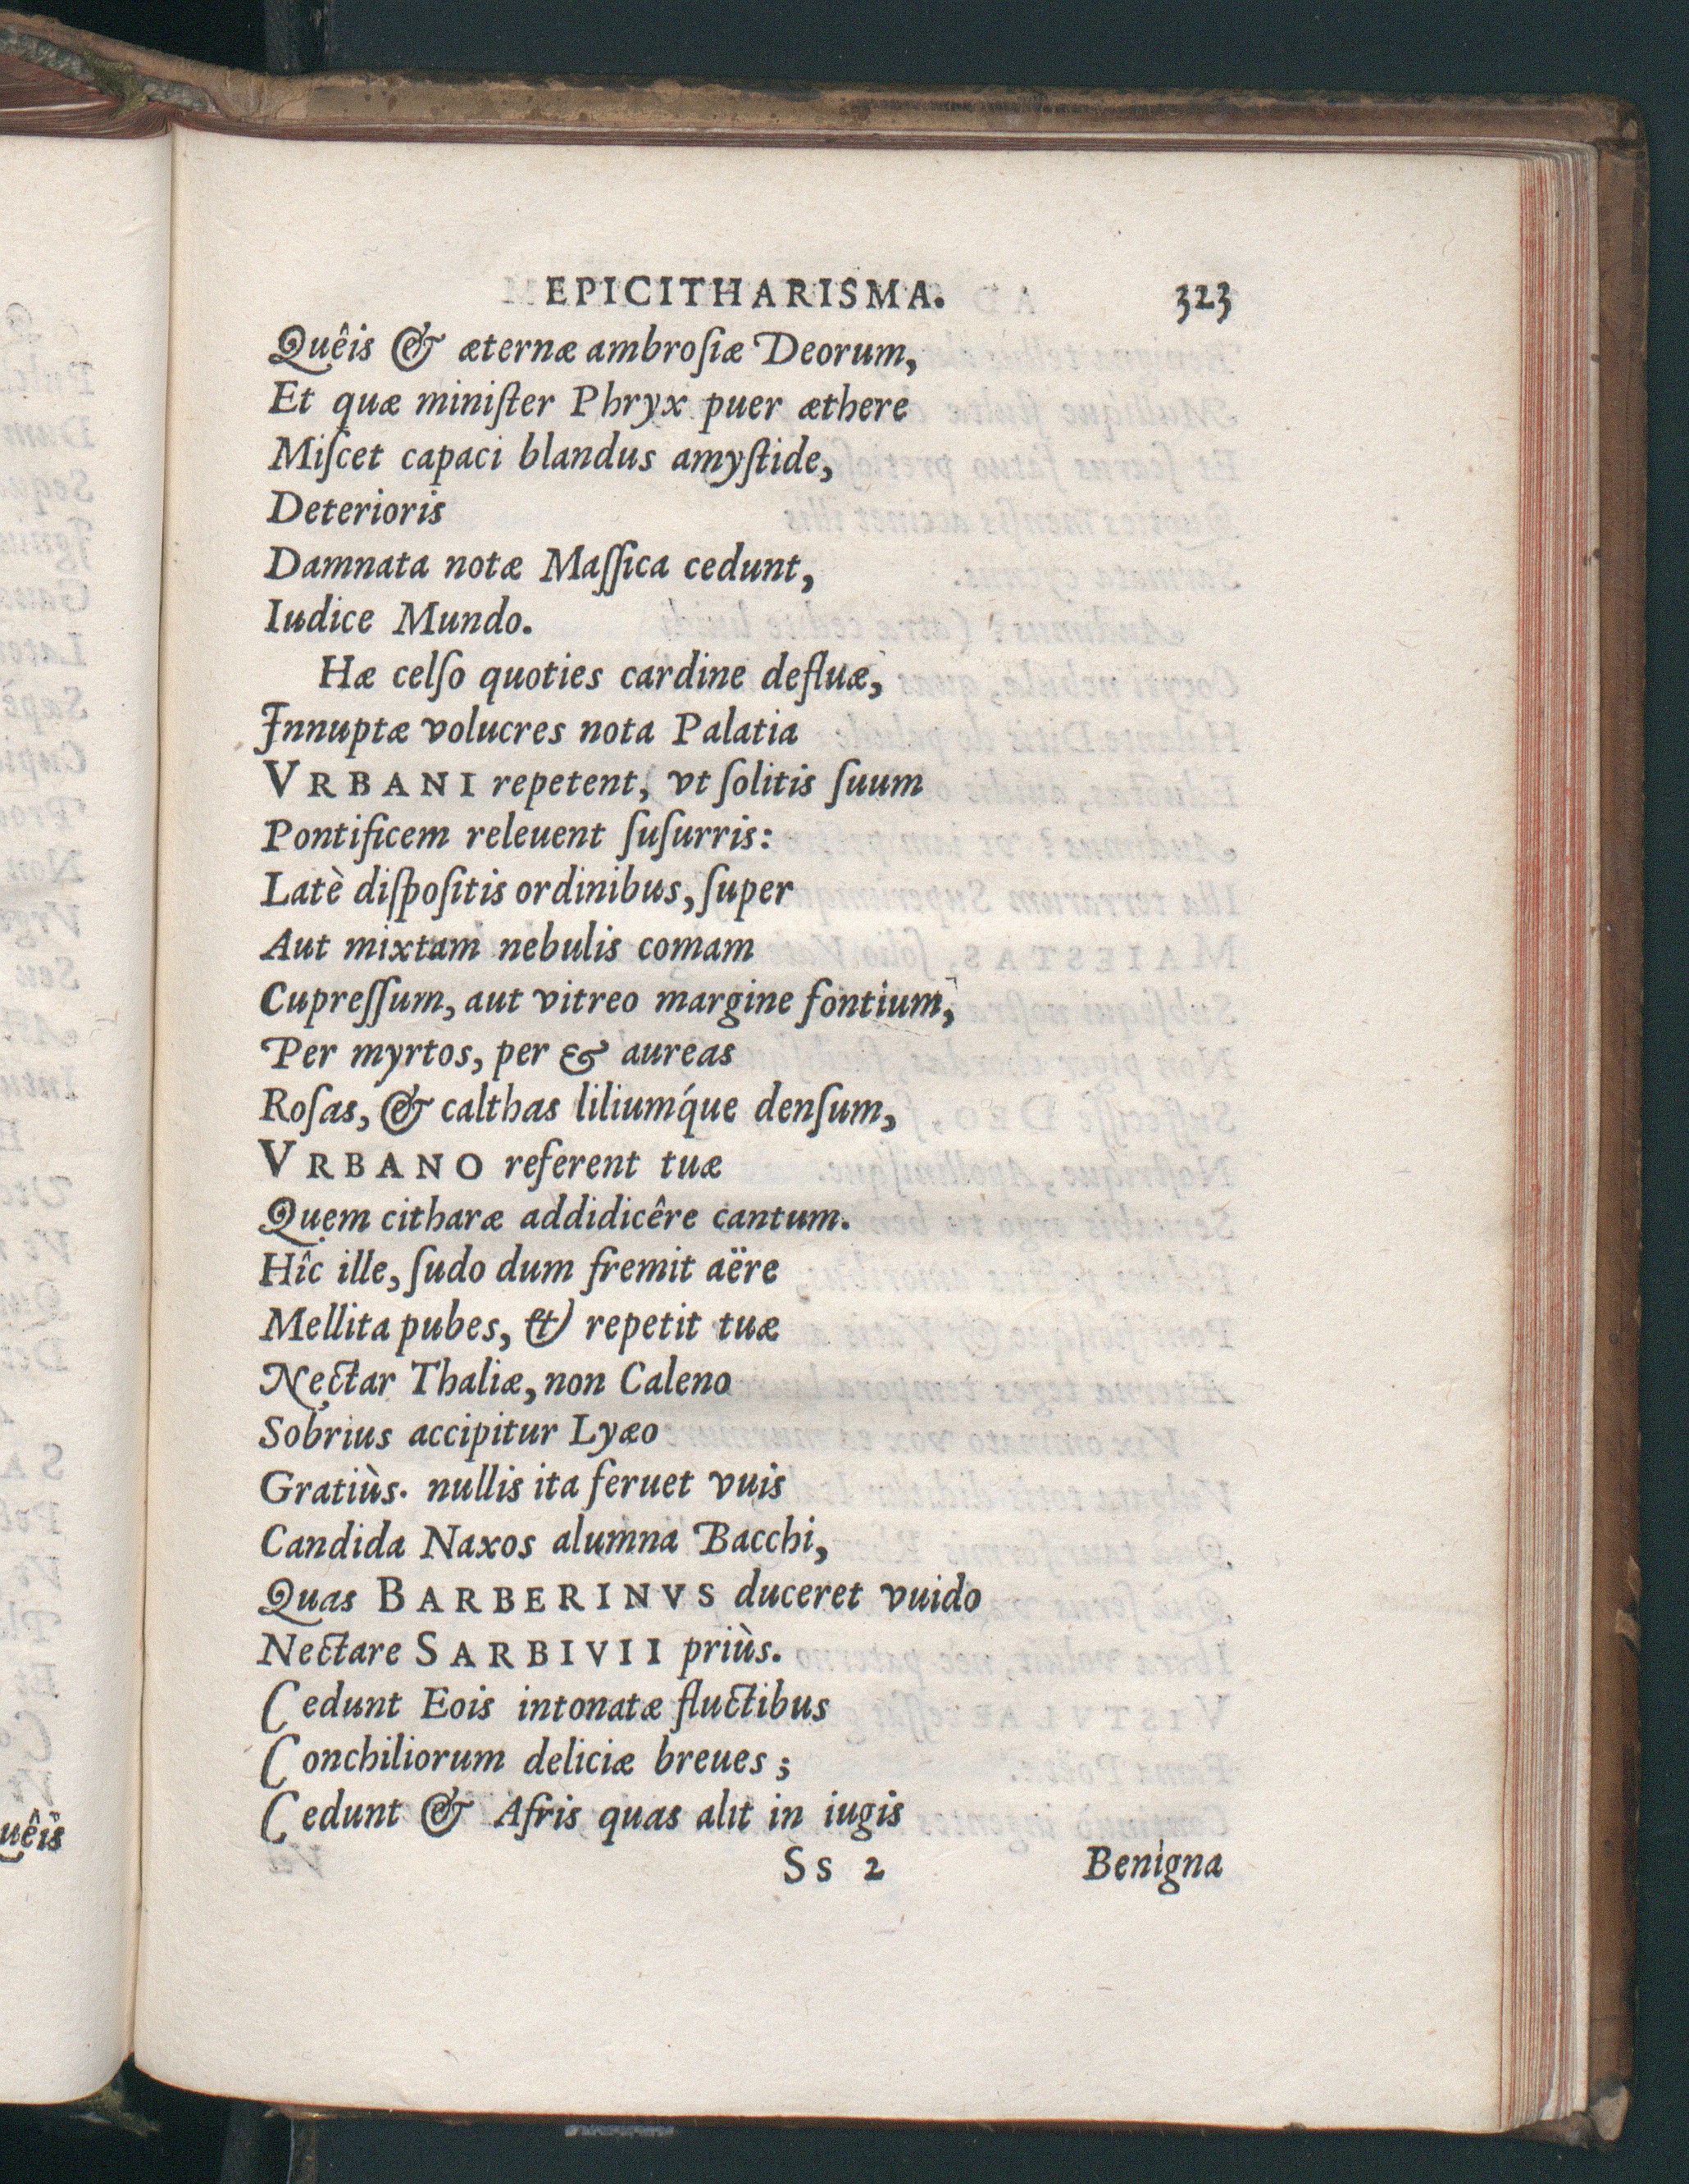 EPICITHARISMA. 323
Quêis & æternæ ambroſiæ Deorum,
Et quæ miniſter Phryx puer æthere
Miſcet capaci blandus amyſtide,
Deterioris
Damnata notæ Maſſica cedunt,
Iudice Mundo.
Hæ celſo quoties cardine defluæ,
Innuptæ volucres nota Palatia
VRBANI repetent, vt ſolitis ſuum
Pontificem releuent ſuſurris:
Latè diſpoſitis ordinibus, ſuper
Aut mixtam nebulis comam
Cupreſſum, aut vitreo margine fontium,
Per myrtos, per & aureas
Roſas, & calthas liliumq́ue denſum,
VRBANO referent tuæ
Quem citharæ addidicêre cantum.
Hîc ille, ſudo dum fremit aëre
Mellita pubes, & repetit tuæ
Nectar Thaliæ, non Caleno
Sobrius accipitur Lyæo
Gratiùs. nullis ita feruet vuis
Candida Naxos alumna Bacchi,
Quas BARBERINVS duceret vuido
Nectare SARBIVII priùs.
Cedunt Eois intonatæ fluctibus
Conchiliorum deliciæ breues;
Cedunt & Afris quas alit in iugis
Ss 2 Benigna
uêis